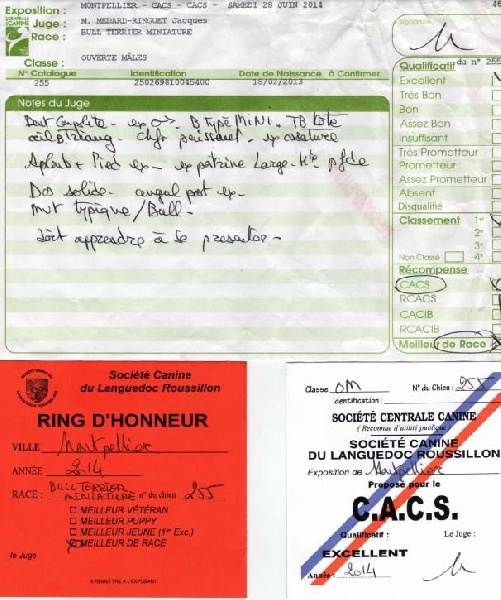 Exposition : MONTPELLIER - CACS - CACS - SAMEDI 28 JUIN 2014
Juge : M. MEDARD-RINGUET Jacques
Race : BULL TERRIER MINIATURE
Classe : OUVERTE MÂLES
N° Catalogue Identification Date de Naissance À Confirmer
255 250269810045400 18/02/2013
Notes du Juge
Dent Complète - ex - B type MiNi - TB tête
puissant - ex ossature
Aplomb + Pied ex - ex poitrine Large -
Dos solide - angul post ex -
mvt typique / Bull -
doit apprendre à se presenter -
Signature
Qualificatif du n° 255
Excellent
Très Bon
Bon
Assez Bon
Insuffisant
Très Prometteur
Prometteur
Assez Prometteur
Absent
Disqualifié
Classement 1er
2e
3e
Non Classé 4e
Récompense
CACS
RCACS
CACIB
RCACIB
Meilleur de Race
Société Canine
du Languedoc Roussillon
RING D'HONNEUR
VILLE Montpellier
ANNÉE 2014
RACE : BULL TERRIER
MINIATURE n° du chien 255
MEILLEUR VÉTÉRAN
MEILLEUR PUPPY
MEILLEUR JEUNE (1er Exc.)
MEILLEUR DE RACE
le Juge
A REMETTRE A L'EXPOSANT
Classe OM N° du Chien : 255
Identification :
SOCIÉTÉ CENTRALE CANINE
(Reconnue d'utilité publique)
SOCIÉTÉ CANINE
DU LANGUEDOC ROUSSILLON
Exposition de Montpellier
Proposé pour le
C.A.C.S.
Qualificatif : Le Juge :
EXCELLENT
Année : 2014